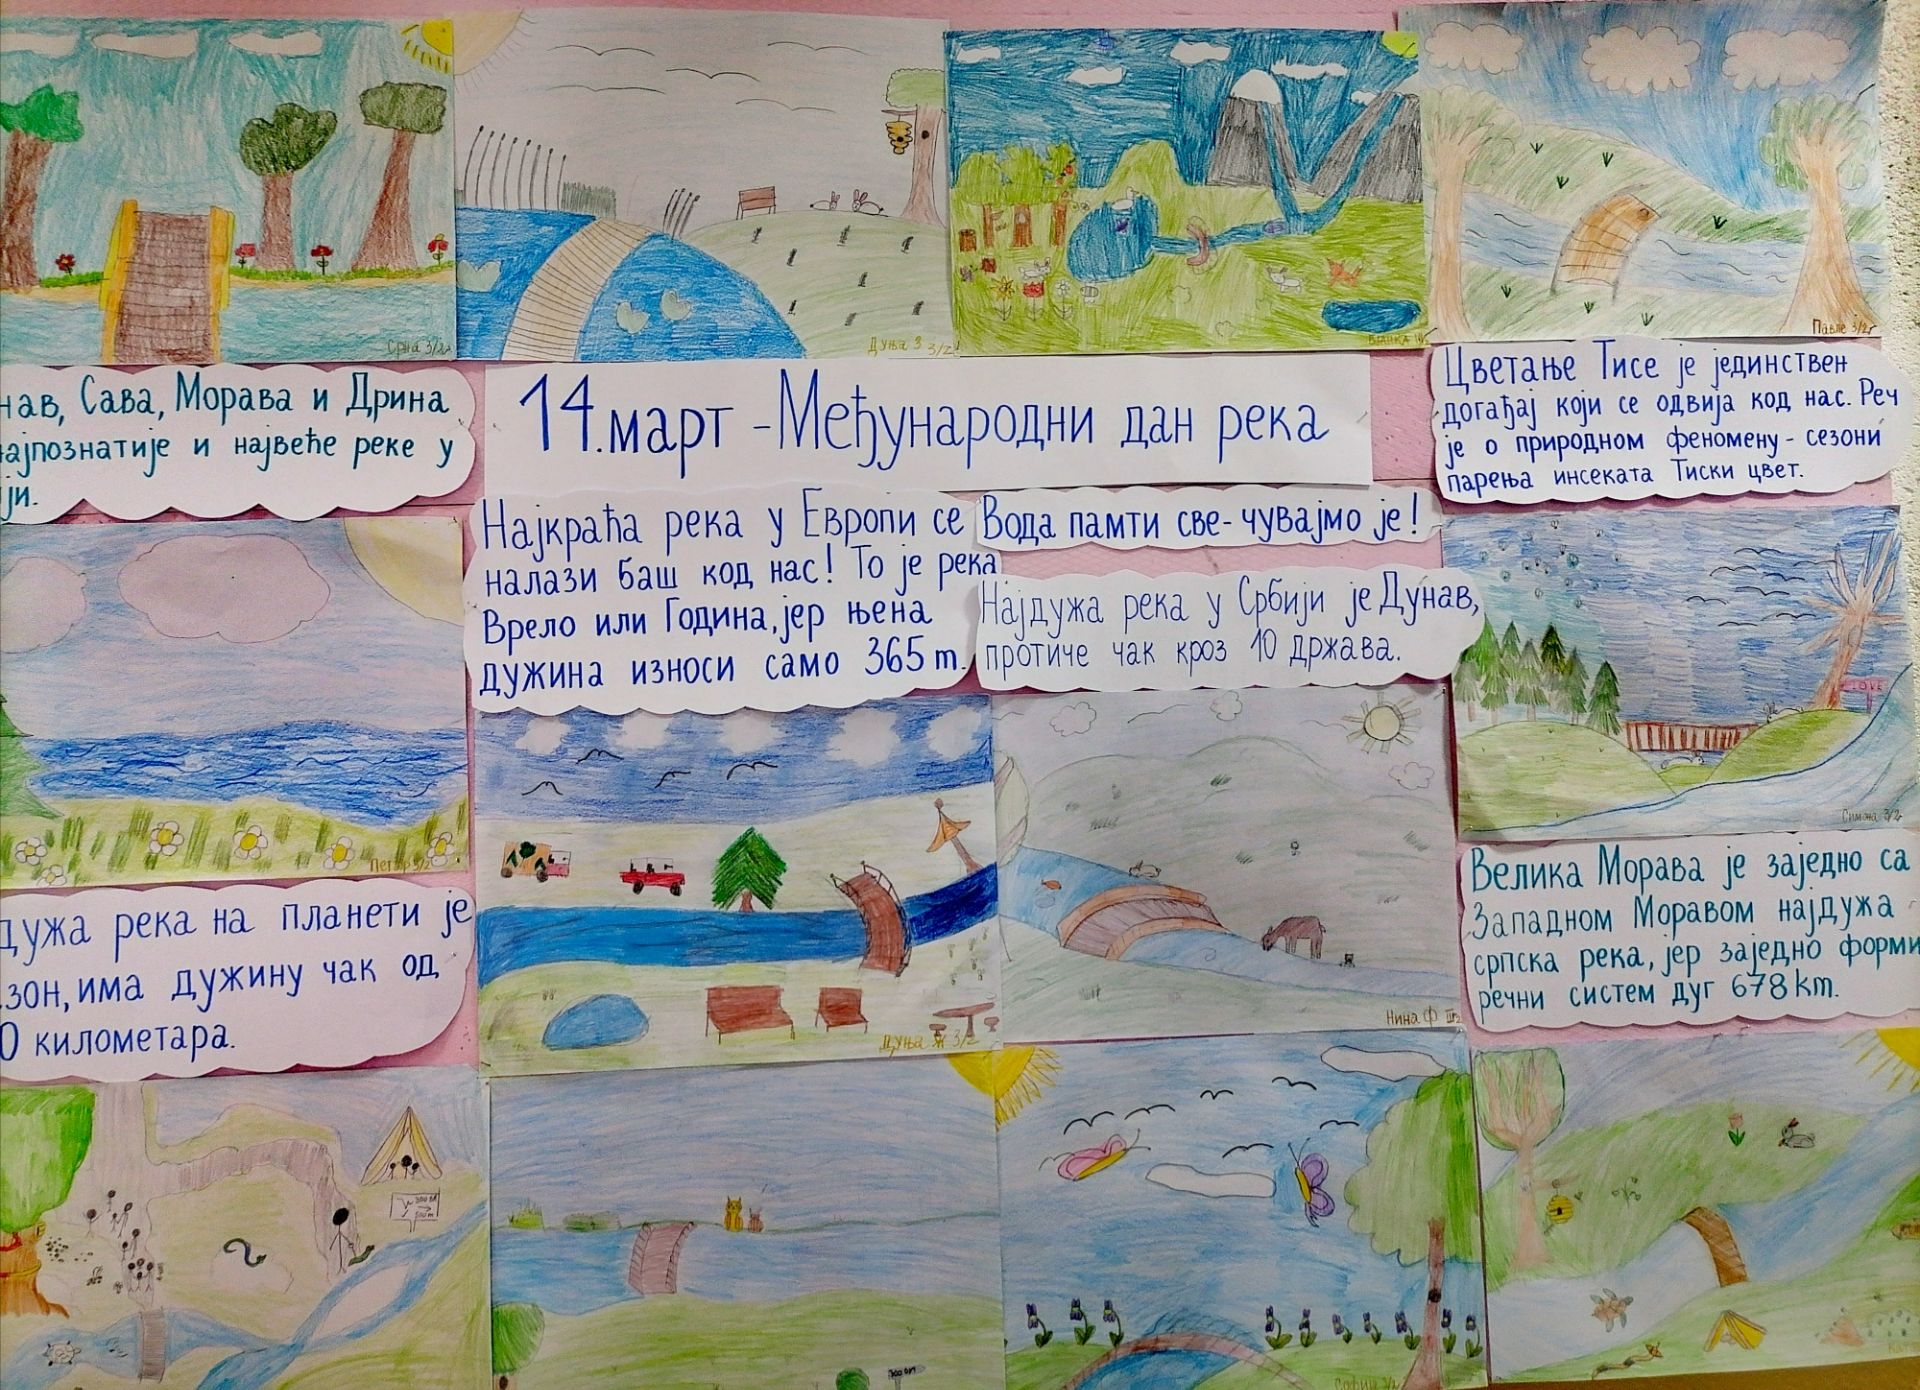 Срна 3/2
Дуња З 3/2
Павле 3/2
Сава, Морава и Дрина
најпознатије и највеће реке у
14. март - Међународни дан река
Цветање Тисе је јединствен
догађај који се одвија код нас. Реч
је о природном феномену - сезони
парења инсеката Тиски цвет.
Најкраћа река у Европи се
налази баш код нас! То је река
Врело или Година, јер њена
дужина износи само 365 m.
Вода памти све - чувајмо је!
Најдужа река у Србији је Дунав,
протиче чак кроз 10 држава.
LOVE
Симона 3/2
Петар 3/2
река на планети је
има дужину чак од
километара.
Дуња Ж 3/2
Нина Ф III2
Велика Морава је заједно са
Западном Моравом најдужа
српска река, јер заједно форми
речни систем дуг 678 km.